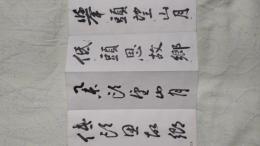 舉頭望山月
低頭思故鄉
舉頭望山月
低頭思故鄉